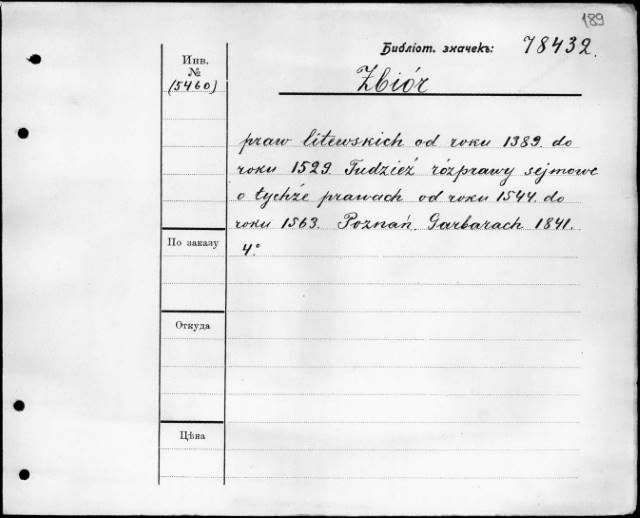 189
Библіот. значекъ: 78432.
Инв.
№
(5460)
Zbiór
praw litewskich od roku 1389. do
roku 1529. Tudzież rózprawy sejmowe
o tychże prawach od roku 1544. do
roku 1563. Poznań. Garbarach 1841.
4°
По заказу
Откуда
Цѣна